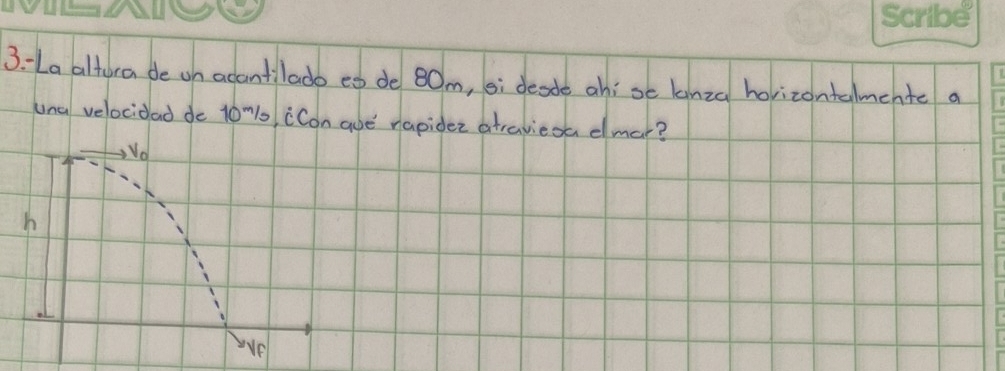 MEXICO
Scribe®
3.- La altura de un acantilado es de 80m, si desde ahí se lanza horizontalmente a
una velocidad de 10m/s, ¿Con qué rapidez atraviesa el mar?
V0
h
Vf